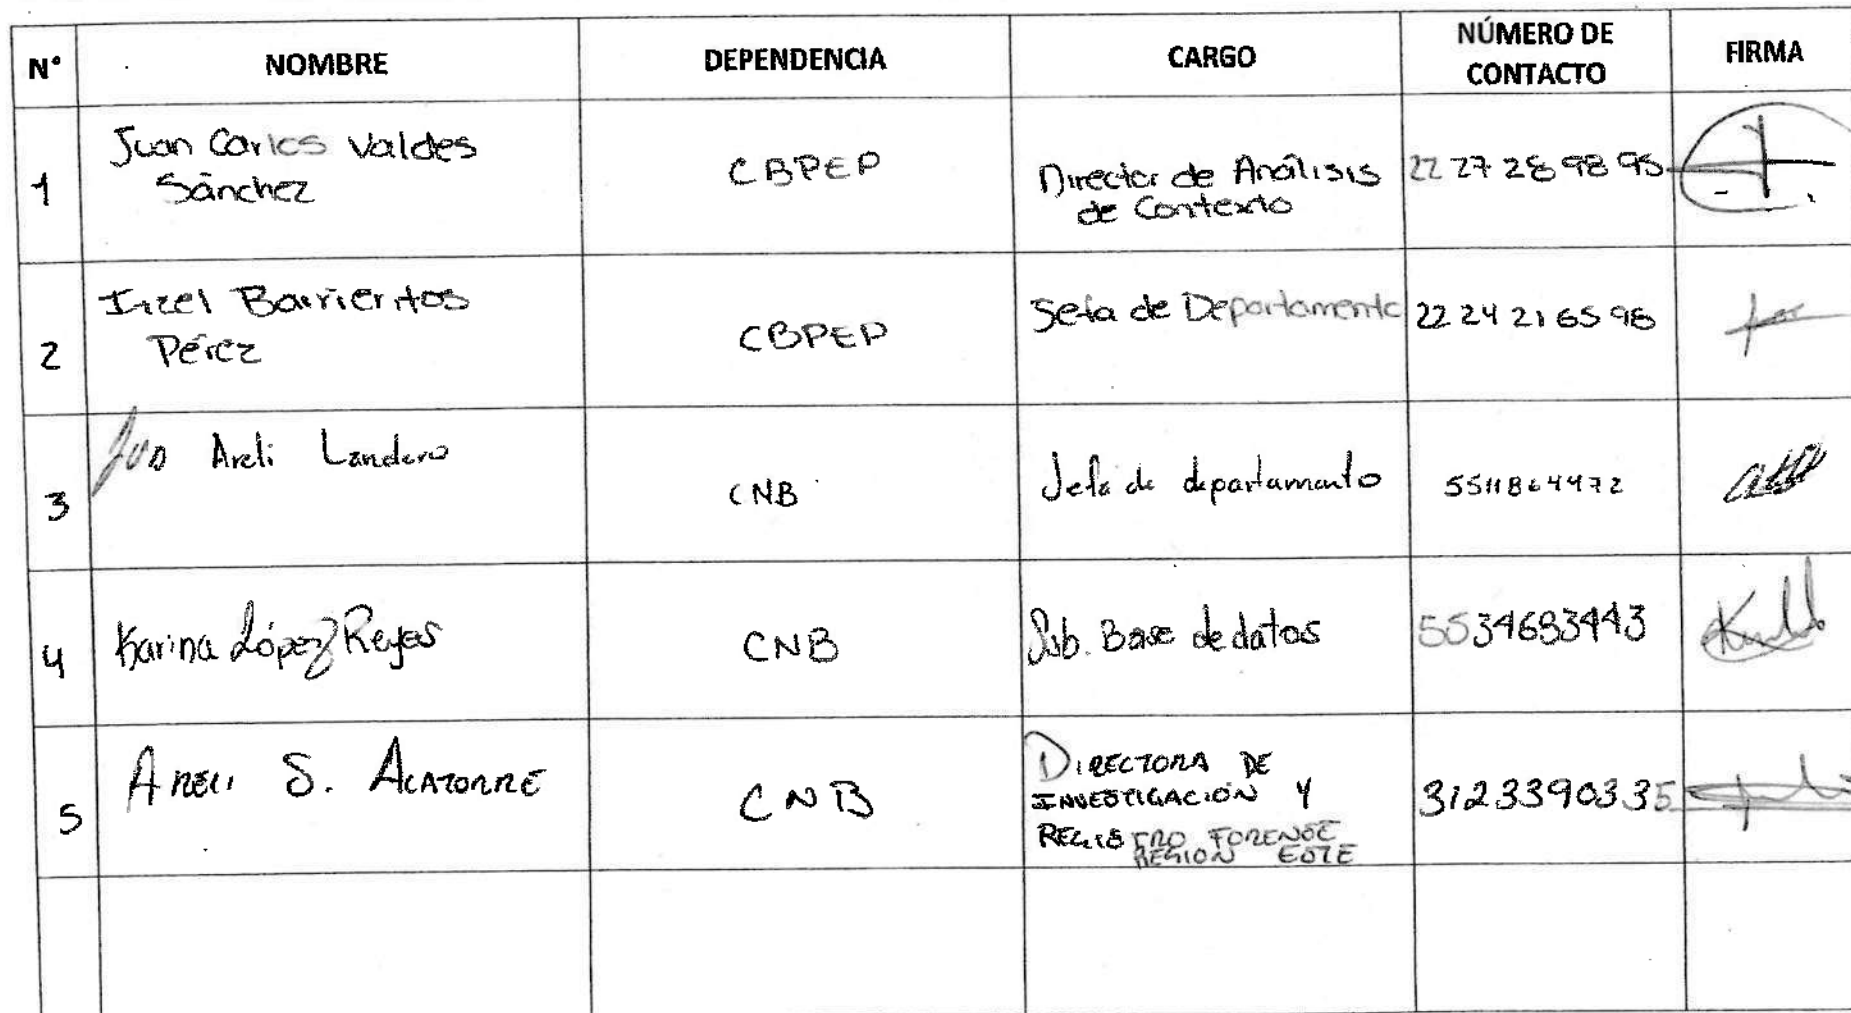 N° NOMBRE DEPENDENCIA CARGO NÚMERO DE CONTACTO FIRMA
1 Juan Carlos Valdes Sánchez CBPEP Director de Análisis de Contexto 22 27 28 98 95
2 Itzel Barrientos Pérez CBPEP Jefa de Departamento 22 24 21 65 98
3 Areli Landero CNB Jefa de departamento
4 Karina López Reyes CNB Sub. Base de datos 5534683443
5 ARELI S. ALATORRE CNB DIRECTORA DE INVESTIGACIÓN Y REGISTRO FORENSE REGION ESTE 3123390335